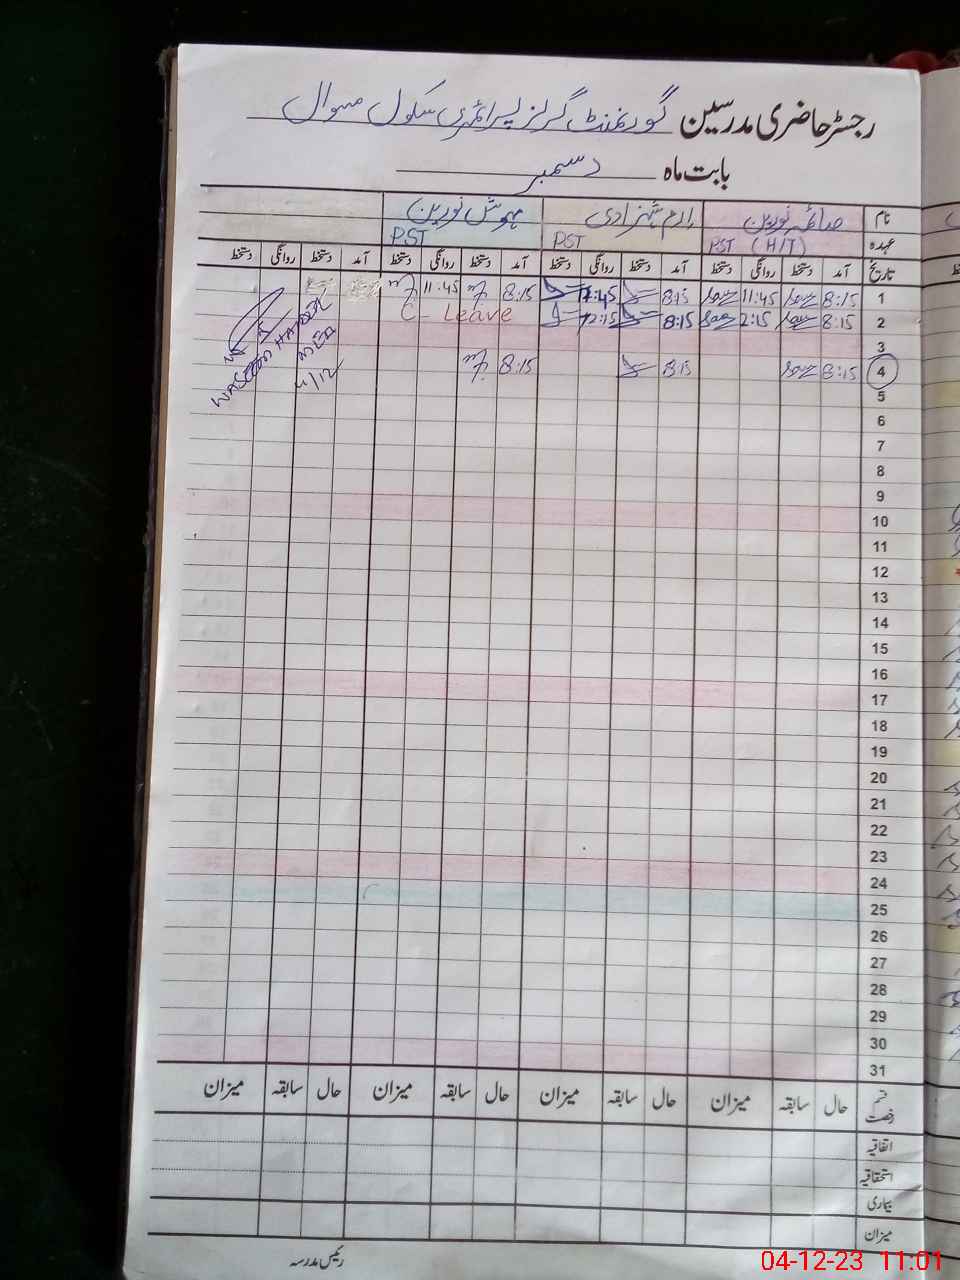 رجسٹر حاضری مدرسین گورنمنٹ گرلز پرائمری سکول
بابت ماہ دسمبر
نام صائمہ نورین ارم شہزادی مہوش نورین
عہدہ PST (H/T) PST PST
تاریخ آمد دستخط روانگی دستخط آمد دستخط روانگی دستخط آمد دستخط روانگی دستخط آمد دستخط روانگی دستخط
1 8:15 11:45 8:15 11:45 8:15 11:45
2 8:15 12:15 8:15 12:15 C- Leave
3
4 8:15 8:15 8:15
WASEEM HAIDER
4/12
5
6
7
8
9
10
11
12
13
14
15
16
17
18
19
20
21
22
23
24
25
26
27
28
29
30
31
قسم رخصت حال سابقہ میزان حال سابقہ میزان حال سابقہ میزان حال سابقہ میزان
اتفاقیہ
استحقاقیہ
بیماری
میزان
رئیس مدرسہ
04-12-23 11:01